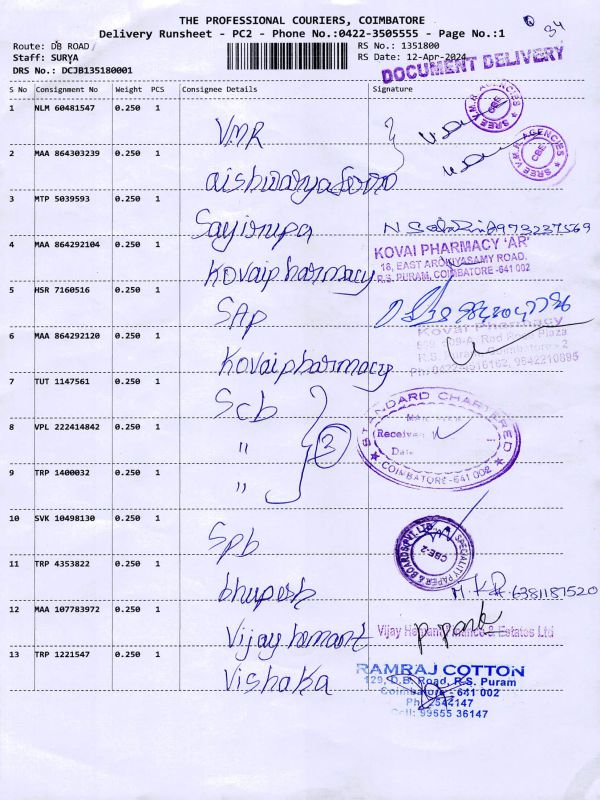 THE PROFESSIONAL COURIERS, COIMBATORE
Delivery Runsheet - PC2 - Phone No.:0422-3505555 - Page No.:1
34
Route: DB ROAD
Staff: SURYA
DRS No.: DCJB135180001
RS No.: 1351800
RS Date: 12-Apr-2024
DOCUMENT DELIVERY
S No Consignment No Weight PCS Consignee Details Signature
1 NLM 60481547 0.250 1 V.M.R
SREE V.M.R. AGENCIES CBE
2 MAA 864303239 0.250 1
SREE V.M.R. AGENCIES CBE
3 MTP 5039593 0.250 1 Sayirupa
4 MAA 864292104 0.250 1 Kovaipharmacy
KOVAI PHARMACY 'AR'
18, EAST AROKIYASAMY ROAD,
R.S. PURAM, COIMBATORE -641 002
5 HSR 7160516 0.250 1 SAP
6 MAA 864292120 0.250 1 Kovaipharmacy
Kovai Pharmacy
7 TUT 1147561 0.250 1 Scb
8 VPL 222414842 0.250 1 "
3
STANDARD CHARTERED
Received
Date
COIMBATORE-641 002
9 TRP 1400032 0.250 1 "
10 SVK 10498130 0.250 1 Spb
SPECIALITY PAPER & BOARDS PVT. LTD.
CBE-2
11 TRP 4353822 0.250 1 bhupesh
6381187520
12 MAA 107783972 0.250 1 Vijay hemant
Vijay Hemant Finance & Estates Ltd
13 TRP 1221547 0.250 1 Vishaka
RAMRAJ COTTON
129, D.B. Road, R.S. Puram
Coimbatore - 641 002
Ph: 2544147
Cell: 99655 36147